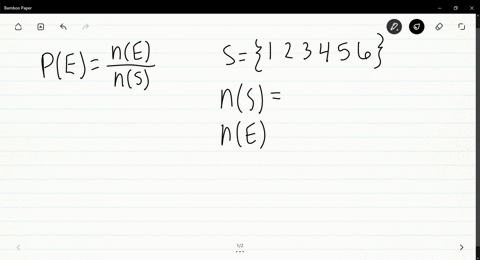 Bamboo Paper
P(E) = n(E)/n(S)
S = {1 2 3 4 5 6}
n(S) =
n(E)
1/2